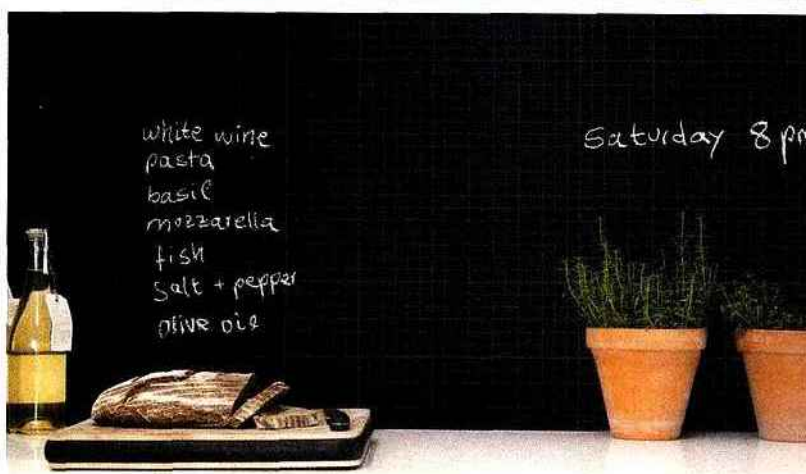 white wine
pasta
basil
mozzarella
fish
salt + pepper
olive oil
Saturday 8 pm